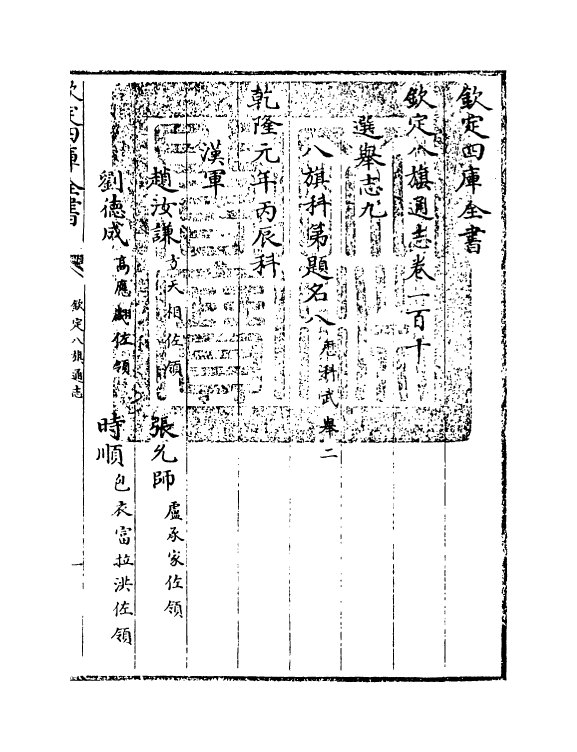 欽定四庫全書
欽定八旗通志卷一百十
選舉志九
八旗科第題名八 歷科武舉二
乾隆元年丙辰科
漢軍
趙汝謙 天相佐領 張允師 盧承家佐領
劉德成 高應 佐領 時順 包衣富拉洪佐領
欽定四庫全書 欽定八旗通志 一